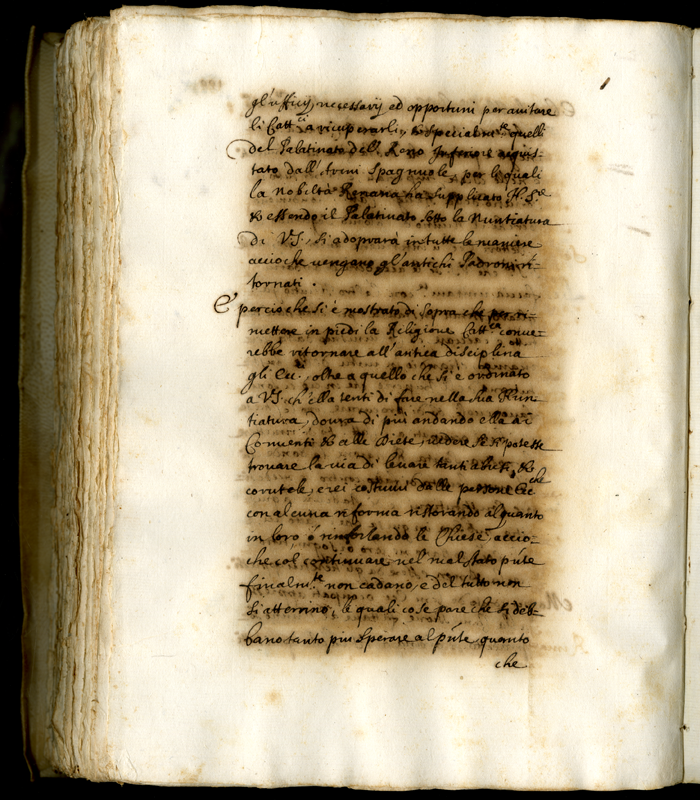 gl'ufficij necessarij ed opportuni per aiutare
li Catt.ci a ricuperarli, & specialm.te quelli
del Palatinato del Reno Inferiore acquis-
tato dall'Armi Spagnuole, per le quali
la Nobiltà Renana ha supplicato N. S.re
& essendo il Palatinato sotto la Nuntiatura
di V.S. si adoprarà in tutte le maniere
accioche vengano gl'antichi Padroni ri-
tornati.
E percioche si è mostrato di sopra che per ri-
mettere in piedi la Religione Catt.ca conue-
rebbe ritornare all'antica disciplina
gli Ecc.ci, oltre a quello che si è ordinato
a V.S. ch'ella tenti di fare nella sua Nun
tiatura, dourà di più andando ella a i
Conuenti & alle Diete, uedere se si potesse
trouare la uia di leuare tanti abusi, &
corutele, e rei costumi dalle persone Ecc.che
con alcuna riforma ristorando alquanto
in loro ò rinforzando le Chiese, accio-
che col continuare nel mal stato pn̄te
finalm.te non cadano, e del tutto non
si atterrino, le quali cose pare che si deb-
bano tanto più sperare al pn̄te quanto
che